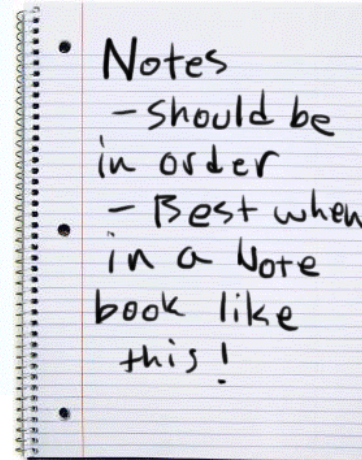 Notes
- Should be
in order
- Best when
in a Note
book like
this!